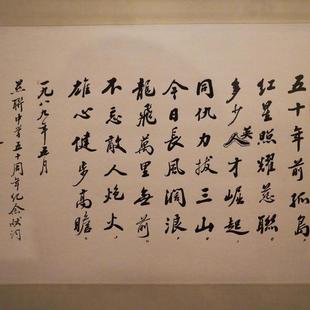 五十年前孤島
红星照耀慈聯。
多少英才崛起
同仇力拔三山。
今日長風濶浪
龍飛萬里無前。
不忘敵人炮火
雄心健步高瞻。
一九八九年五月
慈聯中学五十周年纪念献词